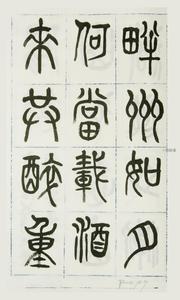 畔州如月
何當載酒
來共醉重